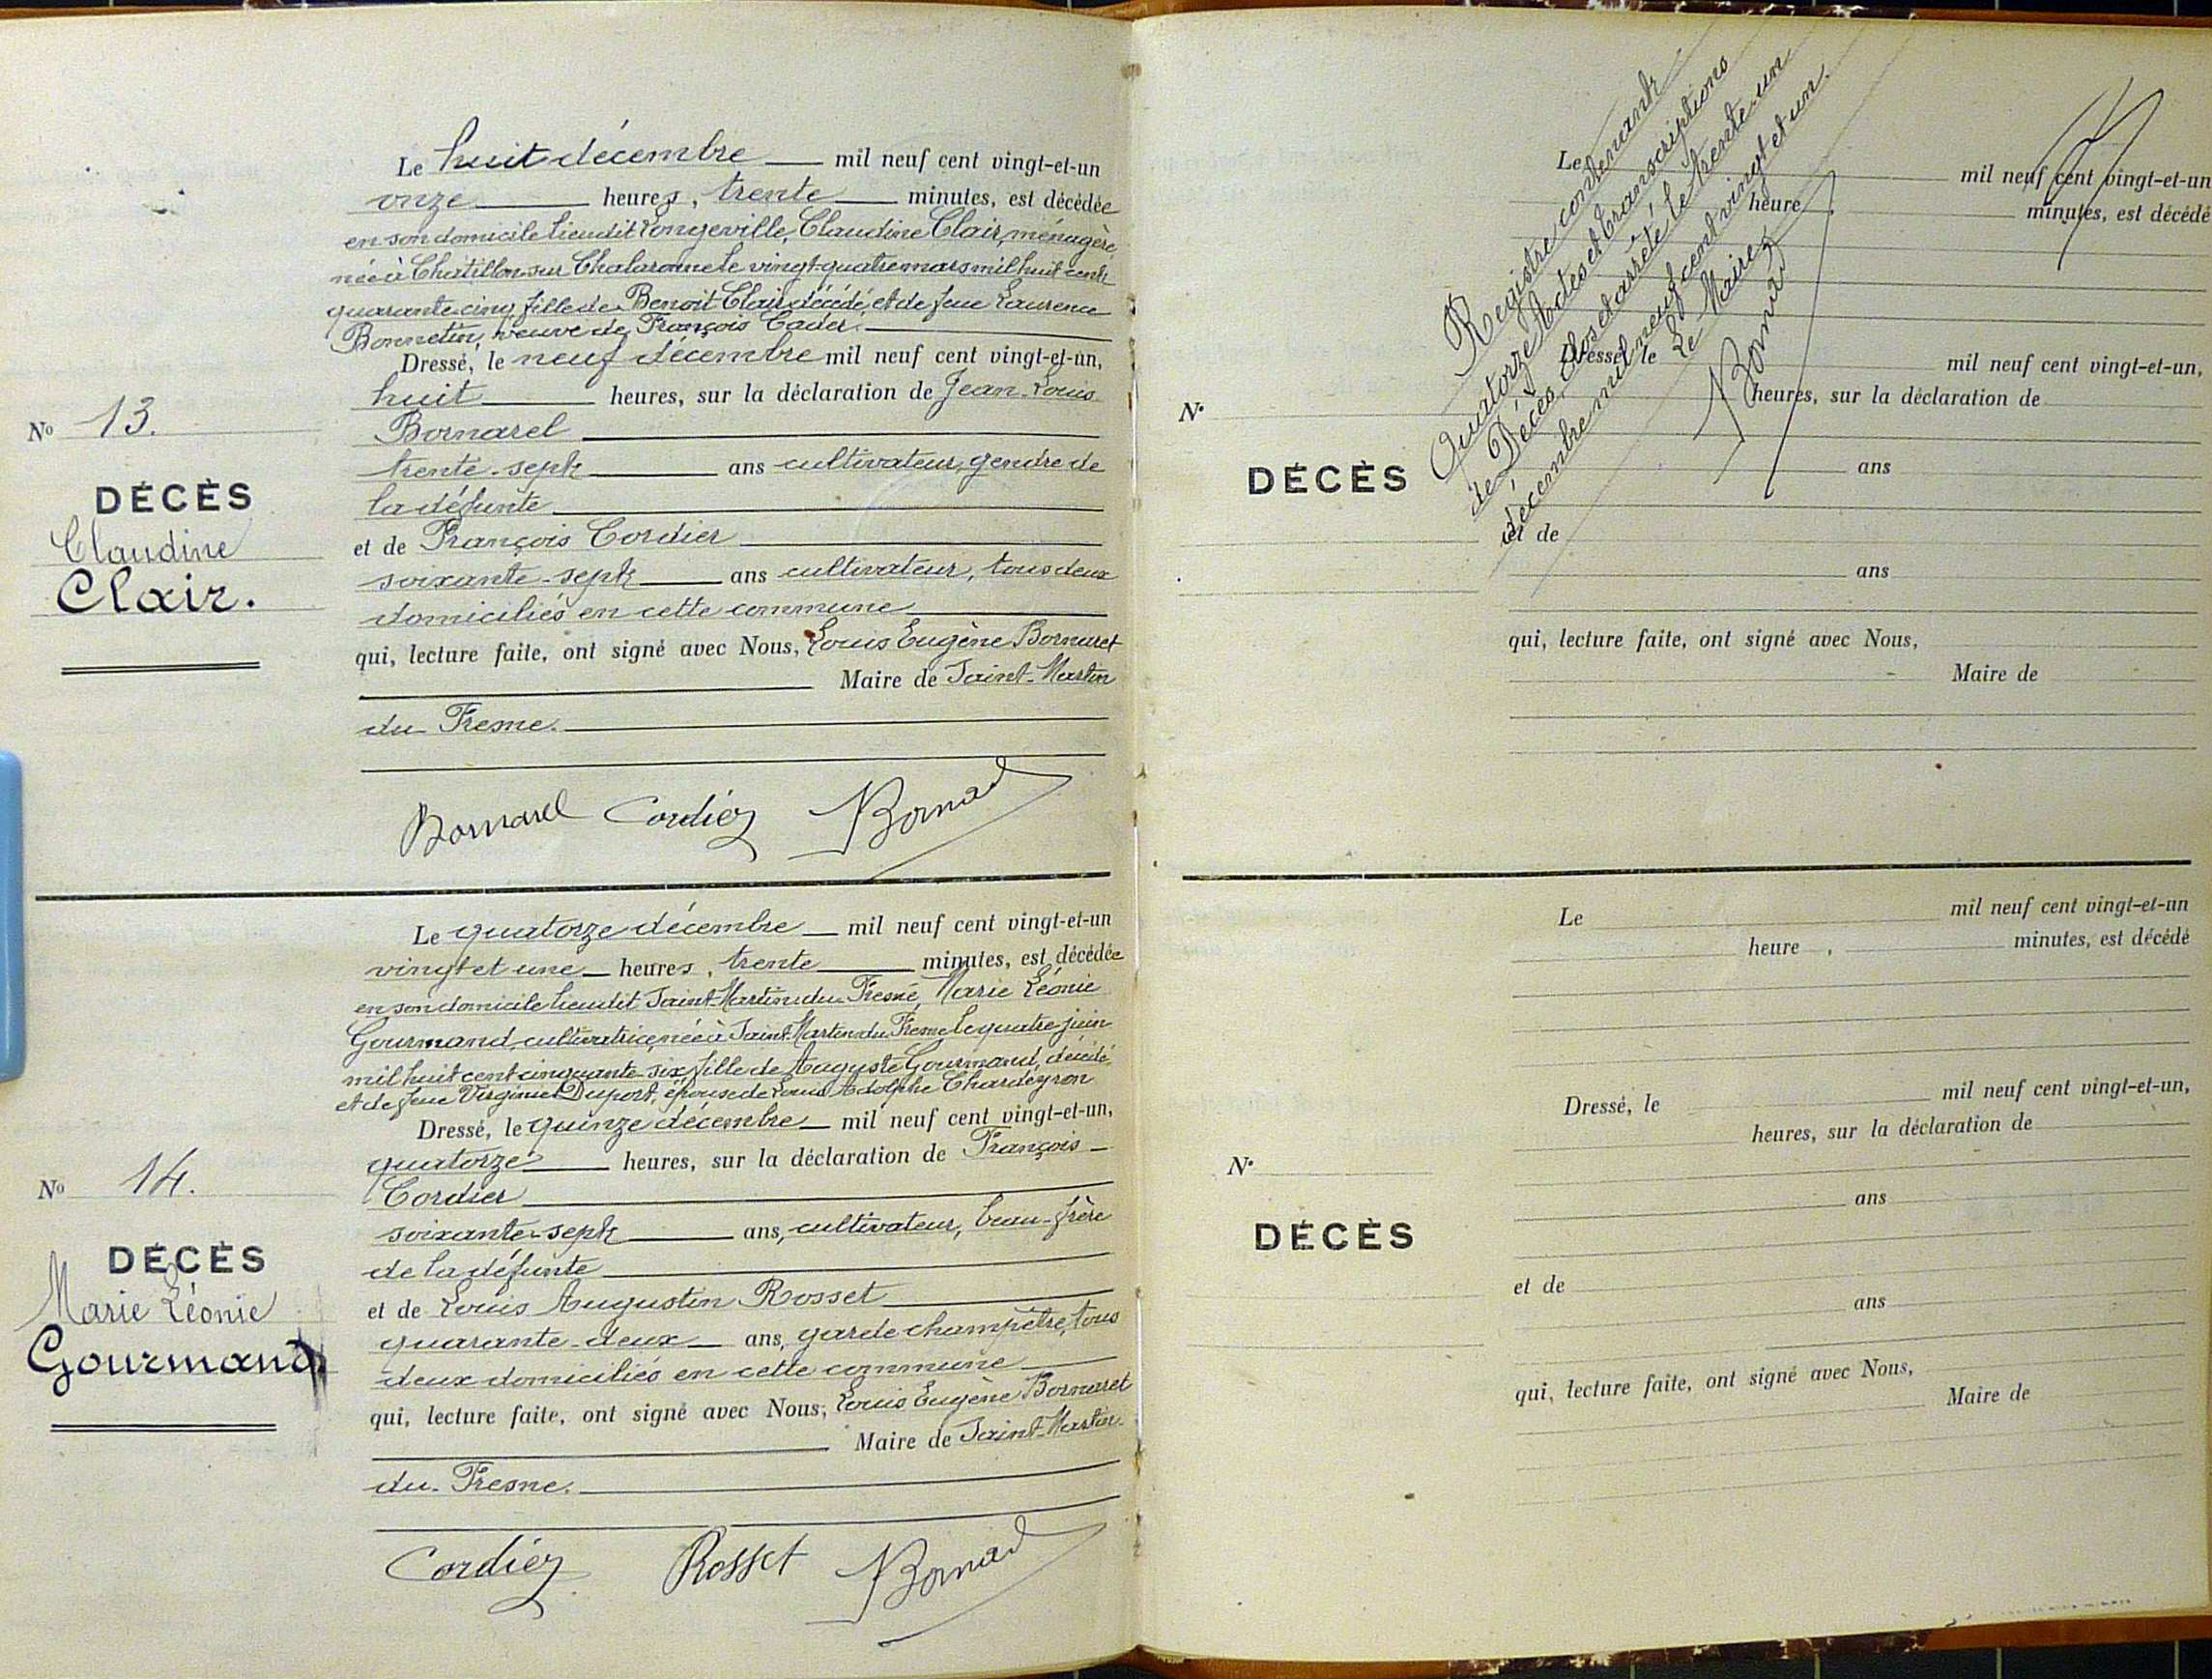 Le huit décembre mil neuf cent vingt-et-un
onze heures, trente minutes, est décédée
en son domicile lieudit Longeville, Claudine Clair, ménagère,
née à Chatillon sur Chalaronne le vingt-quatre mars mil huit cent
quarante cinq fille de Benoit Clair décédé, et de feue Laurence
Bonnetin, veuve de François
Dressé, le neuf décembre mil neuf cent vingt-et-un,
huit heures, sur la déclaration de Jean-Louis
Bornarel
trente-sept ans cultivateur, gendre de
la défunte
et de François Cordier
soixante-sept ans cultivateur, tous deux
domiciliés en cette commune
qui, lecture faite, ont signé avec Nous, Louis Eugène
Maire de Saint-Martin
du Fresne.
No 13.
DÉCÈS
Claudine
Clair.
Bornarel Cordier
Le quatorze décembre mil neuf cent vingt-et-un
vingt et une heures, trente minutes, est décédée
en son domicile lieudit Saint-Martin du Fresne, Marie Léonie
Gourmand, cultivatrice, née à Saint-Martin du Fresne le quatre juin
mil huit cent cinquante-six fille de Auguste Gourmand, décédé
et de feue Virginie Duport, épouse de Louis Adolphe Chardeyron
Dressé, le quinze décembre mil neuf cent vingt-et-un,
quatorze heures, sur la déclaration de François
Cordier
soixante-sept ans, cultivateur, beau-frère
de la défunte
et de Louis Augustin Rosset
quarante-deux ans, garde champêtre, tous
deux domiciliés en cette commune
qui, lecture faite, ont signé avec Nous, Louis Eugène
Maire de Saint-Martin
du Fresne.
No 14.
DÉCÈS
Marie Léonie
Gourmand
Cordier Rosset
Registre contenant
Quatorze Actes et transcriptions
de Décès, clos et arrêté le trente un
décembre mil neuf cent vingt et un.
Le Maire,
Le mil neuf cent vingt-et-un
heure , minutes, est décédé
Dressé, le mil neuf cent vingt-et-un,
heures, sur la déclaration de
N°
DÉCÈS
ans
et de
ans
qui, lecture faite, ont signé avec Nous,
Maire de
Le mil neuf cent vingt-et-un
heure , minutes, est décédé
Dressé, le mil neuf cent vingt-et-un,
heures, sur la déclaration de
N°
DÉCÈS
ans
et de
ans
qui, lecture faite, ont signé avec Nous,
Maire de